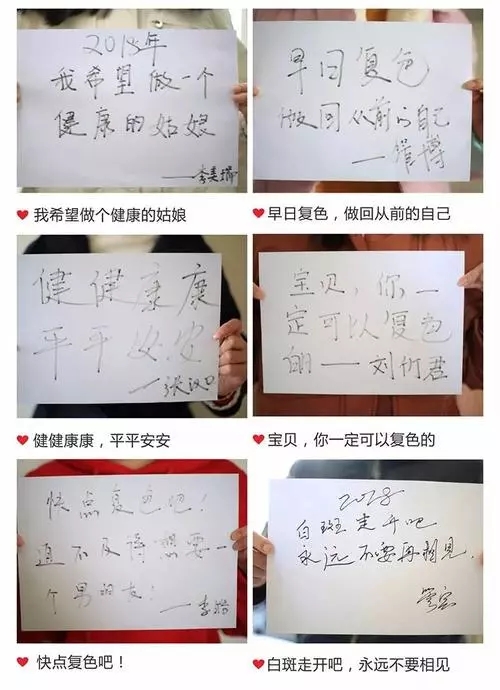 2018年
我希望做一个
健康的姑娘
我希望做个健康的姑娘
早日复色
做回从前的自己
早日复色，做回从前的自己
健健康康
平平安安
健健康康，平平安安
宝贝，你一
定可以复色
的——刘竹君
宝贝，你一定可以复色的
快点复色吧！
迫不及待想要一
个男朋友！
快点复色吧！
2018
白斑走开吧
永远不要再相见
白斑走开吧，永远不要相见